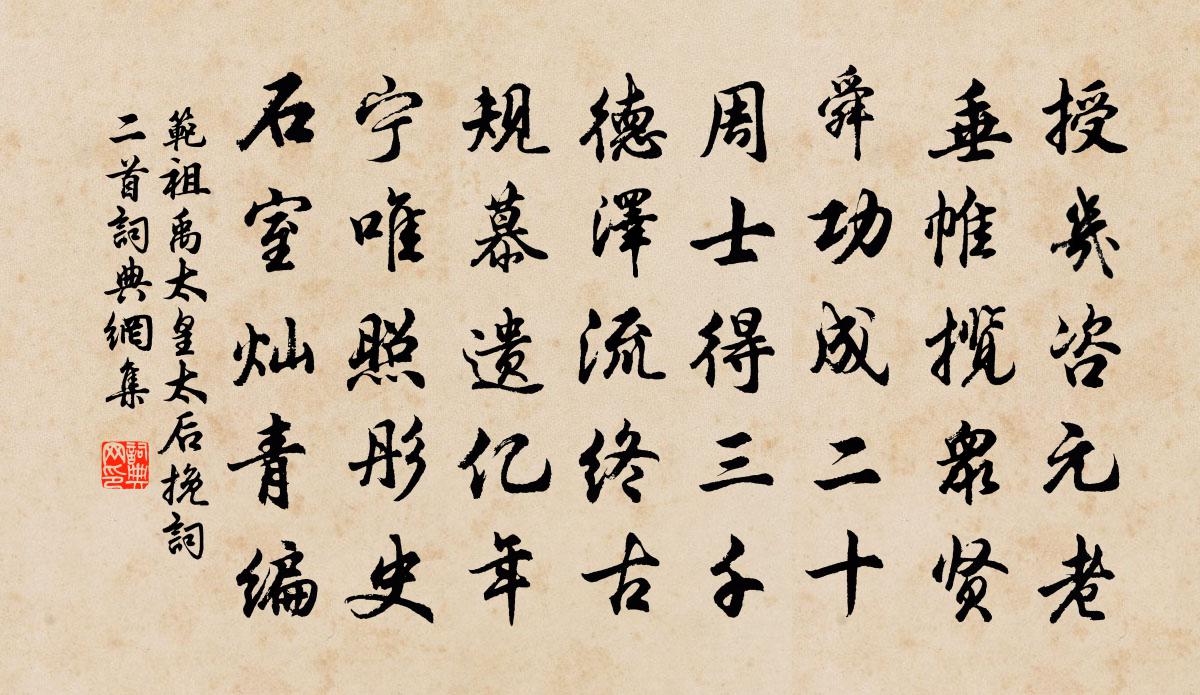 授几咨元老
垂帷揽眾贤
舜功成二十
周士得三千
德澤流终古
规慕遗亿年
宁唯照彤史
石室灿青编
範祖禹太皇太后挽詞
二首詞典網集
詞典網印